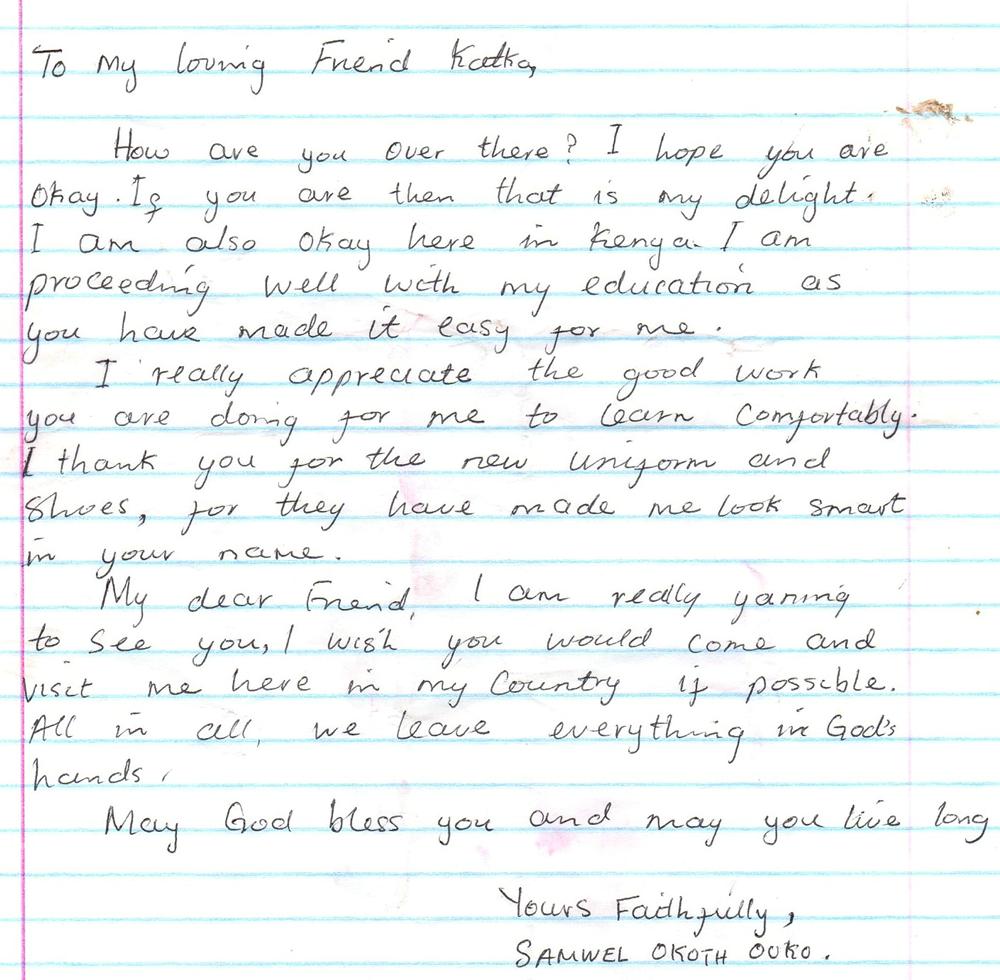 To my loving Friend Katka,
How are you over there? I hope you are
Okay. If you are then that is my delight.
I am also okay here in Kenya. I am
proceeding well with my education as
you have made it easy for me.
I really appreciate the good work
you are doing for me to learn comfortably.
I thank you for the new uniform and
shoes, for they have made me look smart
in your name.
My dear Friend, I am really yaning
to see you, I wish you would come and
visit me here in my Country if possible.
All in all, we leave everything in God's
hands.
May God bless you and may you live long
Yours Faithfully,
SAMWEL OKOTH OUKO.